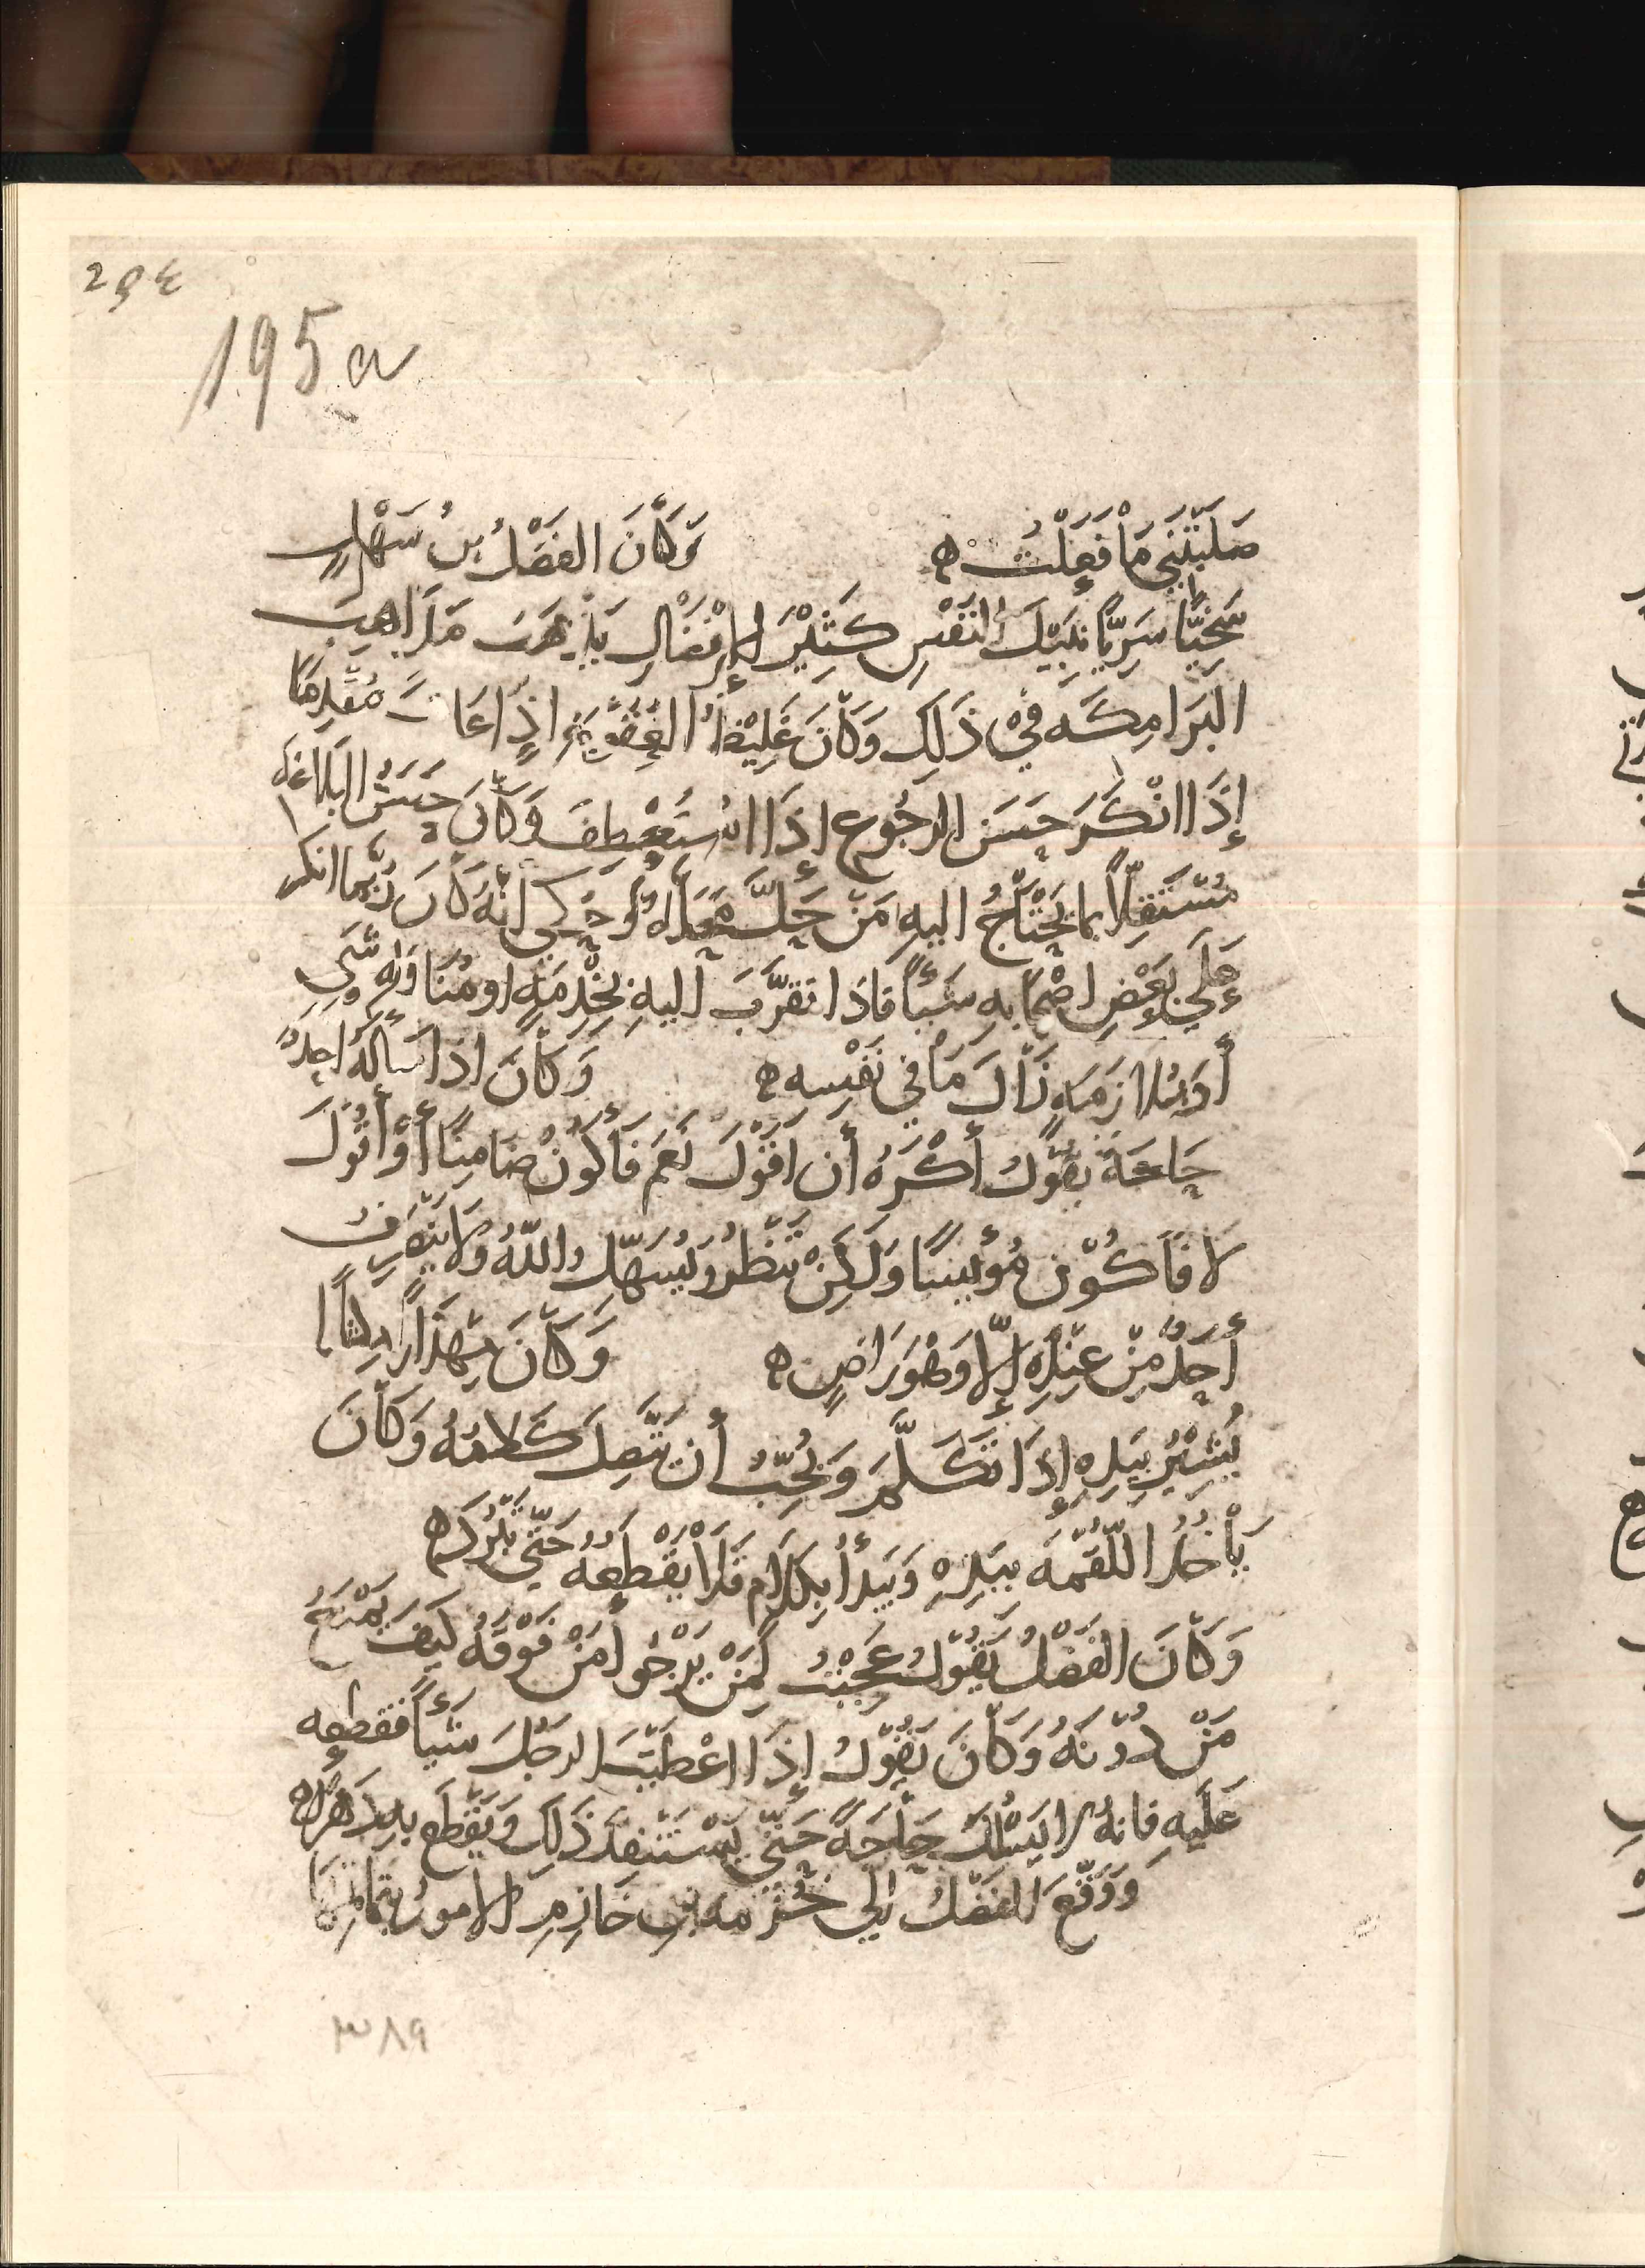 294
195a
صَلَبْتَنِي مَا فَعَلْتُ ه وَكَانَ الفَضْلُ بنُ سَهْلٍ
سَخِيًّا سَرِيًّا نَبِيْلَ النَفْسِ كَثِيْرَ الإِفْضَالِ يَذْهَبَ مَذَاهِبَ
البَرَامِكَه فِيْ ذَلِكَ وَكَانَ غَلِيْظَ اذَا مُقْدِمًا
إِذَا انْكَرَ حَسَنَ الرجُوعِ اذَا اسْتُعْطِفَ وَكَانَ حَسَنَ البَلَاغَه
مُسْتَقِلًّا بما يَحْتَاجُ اليهِ مَنْ حَلَّ مَحَلَّهُ وحُكِي أَنَّهُ كَانَ رُبَّمَا انكَر
عَلَى بَعْضِ اصْحَابِهِ شَيْأً فاذَا تقرَّبَ اليهِ بخِدْمَةٍ او مُنَاوَلَهِ شَيءٍ
أَو مُلازَمَةٍ زَالَ مَا فِي نَفْسِه ه وَكَانَ اذَا سَأَلَهُ احَدٌ
حَاجَةً يَقُوْلُ أَكْرَهُ أن اقُوْلَ نَعَمْ فَأَكُوْنُ ضَامِنًا أَوْ أَقُوْلَ
لا فَأَكُوْن مُؤْيِسًا وَلَكِنْ نَنْظُرُ وَيُسَهِّلُ اللَّهُ وَلَا يَنْصَرِفُ
أَحَدٌ مِنْ عِنْدِهِ إِلَّا وَهْوَ رَاضٍ ه وَكَانَ مِهْذَاراً
يُشِيْرُ بِيَدِهِ إِذَا تَكَلَّمَ وَيُحِبُّ أَن يَتَّصِلَ كَلامُهُ وَكَانَ
يَأْخُذُ اللُّقْمَهَ بِيَدِهِ وَيَبدأُ بِكَلَامٍ فَلَا يَقْطَعُهُ حَتَّى تَبْرُدَ ه
وَكَانَ الفَضْلُ يَقُوْلُ عَجِبْتُ لِمَنْ يَرْجُوا مَنْ فَوْقَهُ كَيفَ يَمْنَعُ
مَنْ دُوْنَهُ وَكَانَ يَقُوْلُ إِذَا اعْطَيْتَ الرجُلَ شَيْأً فقَطعه
عَلَيهِ فانهُ لا يَسْلُكَ حَاجَةً حَتَّى يَسْتَنْفِدَ ذَلِكَ وَيَقْطَع
وَوَقَّعَ الفَضْلُ الَى خُزَيْمَه بنِ خَازِمٍ الامورُ بتَمَامِهَا
٣٨٩